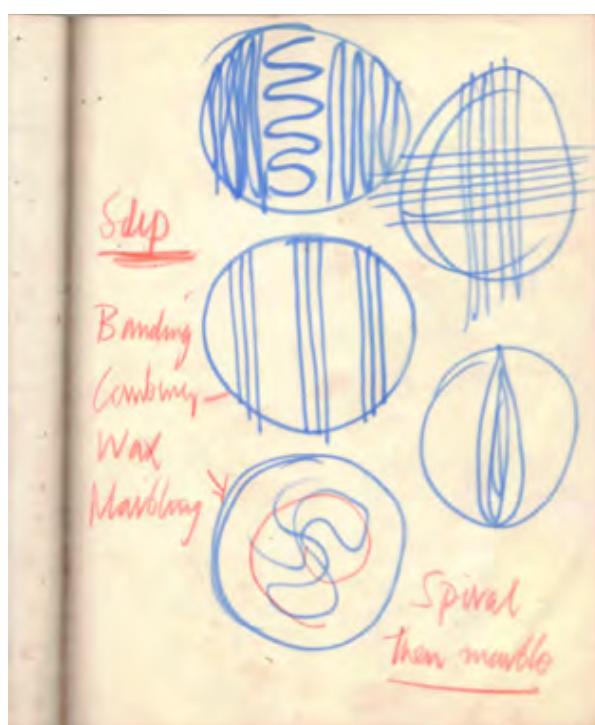 Slip
Banding
Combing
Wax
Marbling
Spiral
then marble